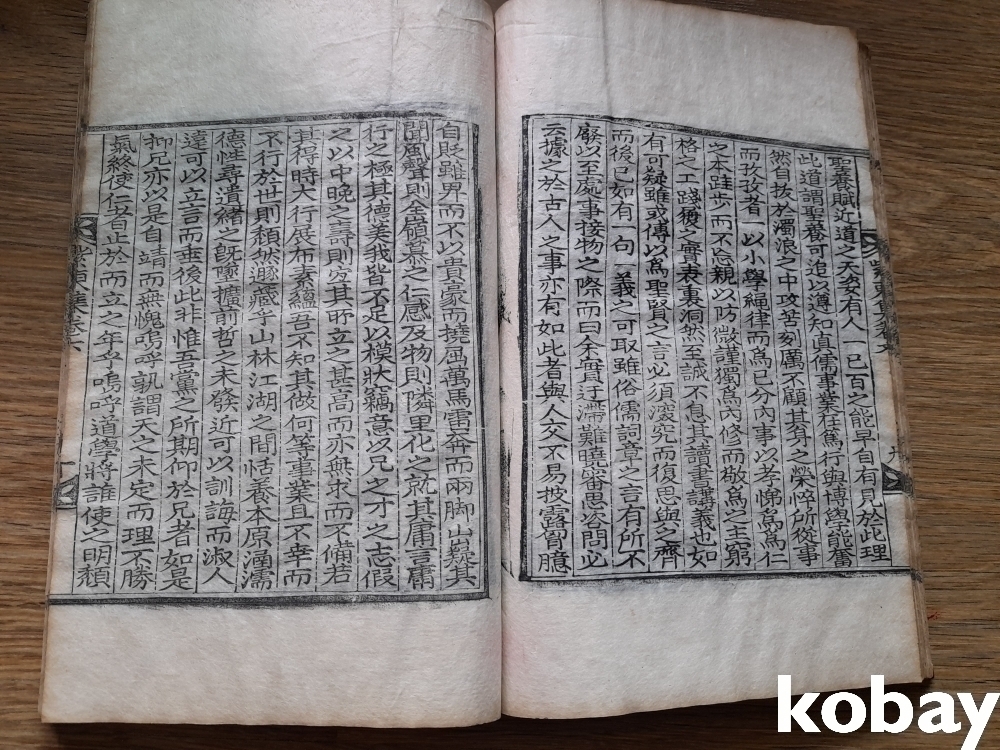 聖養賦近道之天姿有人一己百之能早自有見於此理
此道謂聖養可追以遵知眞儒事業在篤行與博學能奮
然自拔於濁浪之中攻苦刻厲不顧其身之榮悴所從事
而孜孜者一以小學編律而爲己分內事以孝悌爲爲仁
之本跬步而不忘親以防微謹獨爲內修而敬爲之主窮
格之工踐履之實表裏洞然至誠不息其讀書講義也如
有可疑雖或傳以爲聖賢之言必須深究而復思與之齊
而後已如有一句一義之可取雖俗儒詞章之言有所不
廢以至處事接物之際而曰余實迂滯難曉審思咨問必
云據之於古人之事亦有如此者與人交不易披露胷臆
自貶雖男而不以貴豪而撓屈萬馬雷奔而兩脚山凝其
聞風聲則僉嶺慕之仁感及物則隣里化之就其庸言庸
行之極其德美我皆不足以模狀竊意以兄之才之志假
之以中晚之壽則究其所立之甚高而亦無求而不備若
其得時大行展布素蘊吾不知其做何等事業且不幸而
不行於世則頹然遯藏乎山林江湖之間恬養本原涵濡
德性尋遺緖之旣墜擴前哲之未發近可以訓誨而淑人
遠可以立言而垂後此非惟吾黨之所期仰於兄者如是
抑兄亦以是自靖而無愧嗚呼孰謂天之未定而理不勝
氣終使仁者止於而立之年乎嗚呼道學將誰使之明頹
kobay